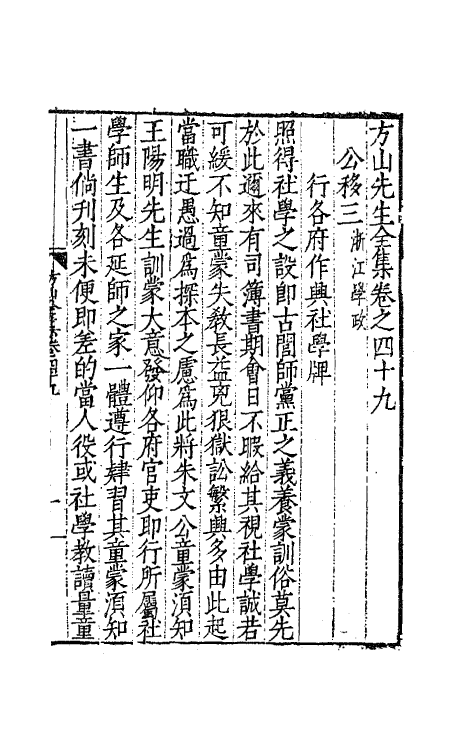 方山先生全集卷之四十九
公移三浙江學政
行各府作興社學牌
照得社學之設卽古閭師黨正之義養蒙訓俗莫先
於此邇來有司簿書期會日不暇給其視社學誠若
可緩不知童蒙失教長益兇狠獄訟繁興多由此起
當職迂愚過爲探本之慮爲此將朱文公童蒙須知
王陽明先生訓蒙大意發仰各府官吏即行所屬社
學師生及各延師之家一體遵行肄習其童蒙須知
一書倘刊刻未便即差的當人役或社學教讀量童